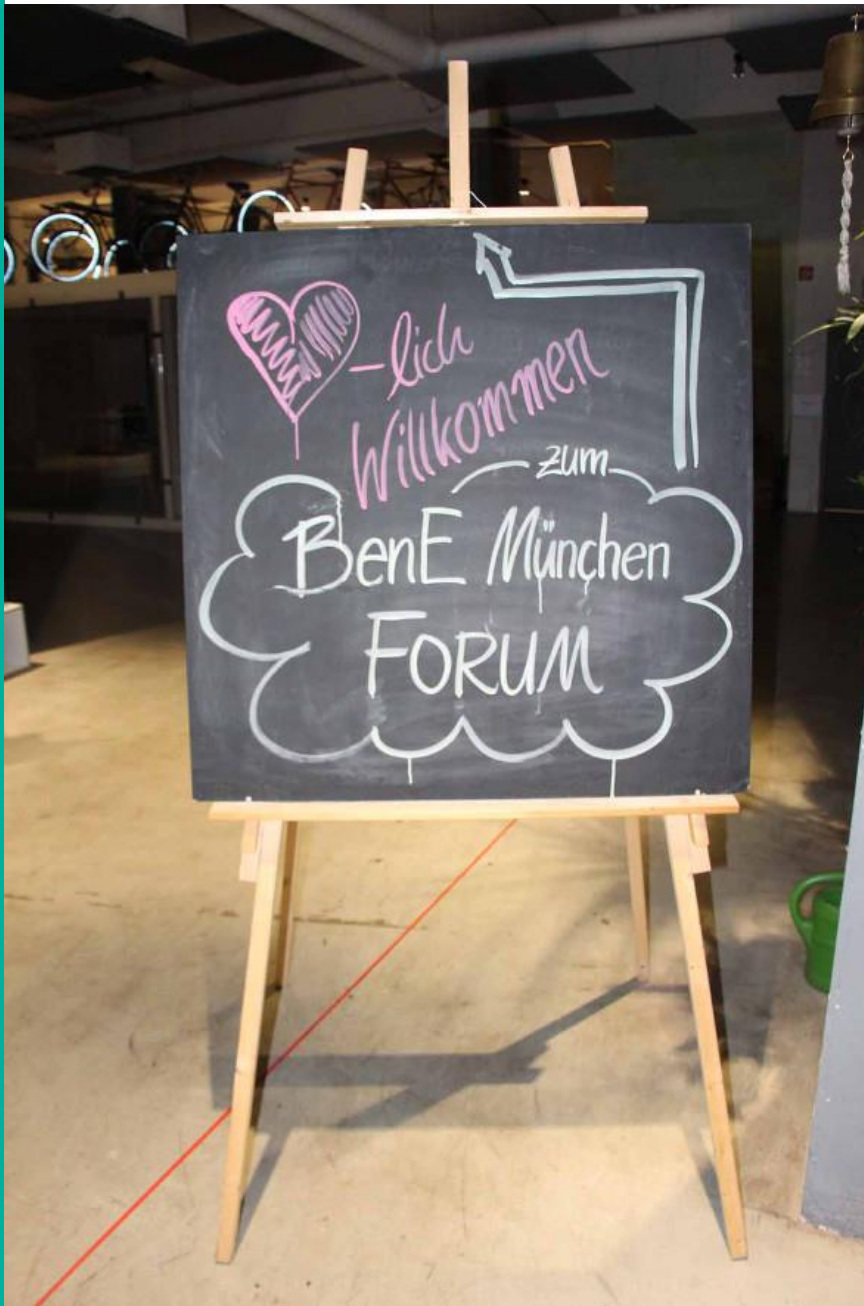 -lich
Willkommen
zum
BenE München
FORUM